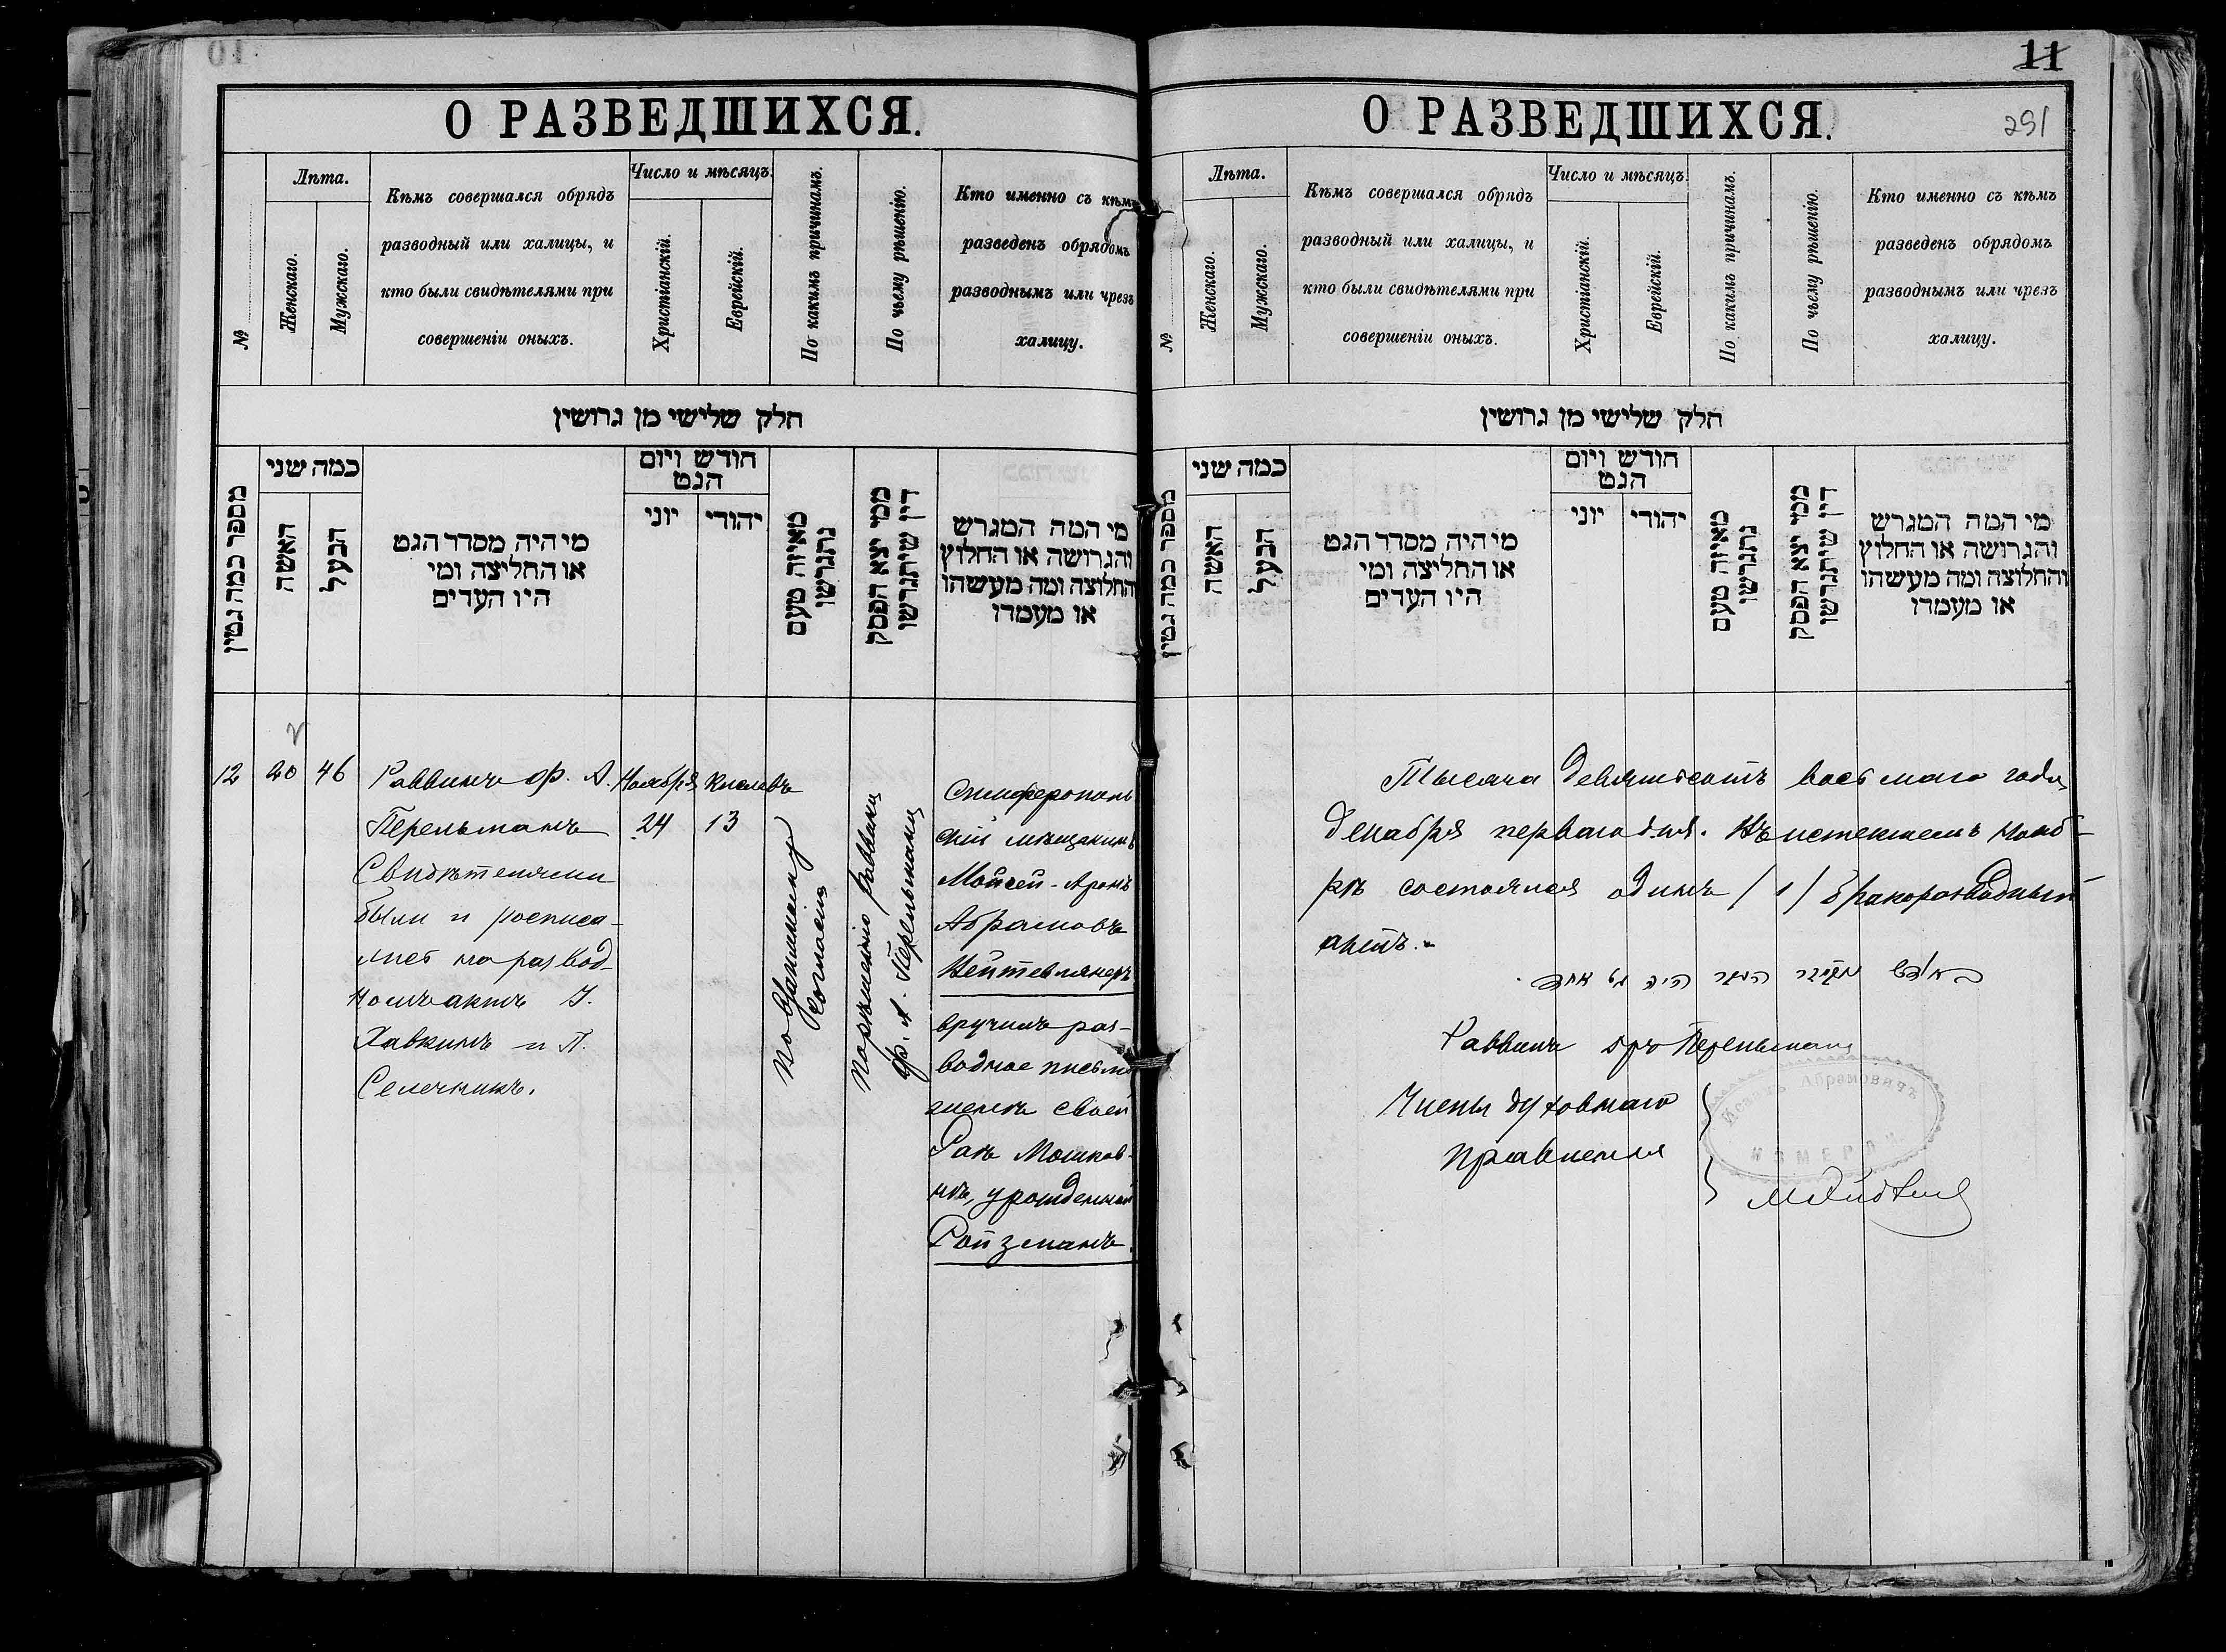 О РАЗВЕДШИХСЯ.
№
Лѣта.
Женскаго.
Мужскаго.
Кѣмъ совершался обрядъ
разводный или халицы, и
кто были свидѣтелями при
совершеніи оныхъ.
Число и мѣсяцъ.
Христіанскій.
Еврейскій.
По какимъ причинамъ.
По чьему рѣшенію.
Кто именно съ кѣмъ
разведенъ обрядомъ
разводнымъ или чрезъ
халицу.
חלק שלישי מן גרושין
מספר כמה גטין
כמה שני
האשה
הבעל
מי היה מסדר הגט
או החליצה ומי
היו העדים
חודש ויום
הגט
יוני
יהודי
מאיזה טעם
נתגרשו
ממי יצא הפסק
דין שיתגרשו
מי המה המגרש
והגרושה או החלוץ
והחלוצה ומה מעשהו
או מעמדו
12
20
46
Раввинъ Ф. А.
Перельманъ
Свидѣтелями
были и росписа-
лись на развод-
номъ актѣ І.
Хавкинъ и П.
Селечникъ.
Ноября
24
Кислевъ
13
по взаимному
согласію
по рѣшенію раввина
Ф. А. Перельмана
Симферополь
скій мѣщанинъ
Мойсей-Аронъ
Абрамовъ
вручилъ раз-
водное письмо
женѣ своей
Мошков-
нѣ, урожденной
Ройзманъ.
11
291
О РАЗВЕДШИХСЯ.
№
Лѣта.
Женскаго.
Мужскаго.
Кѣмъ совершался обрядъ
разводный или халицы, и
кто были свидѣтелями при
совершеніи оныхъ.
Число и мѣсяцъ.
Христіанскій.
Еврейскій.
По какимъ причинамъ.
По чьему рѣшенію.
Кто именно съ кѣмъ
разведенъ обрядомъ
разводнымъ или чрезъ
халицу.
חלק שלישי מן גרושין
מספר כמה גטין
כמה שני
האשה
הבעל
מי היה מסדר הגט
או החליצה ומי
היו העדים
חודש ויום
הגט
יוני
יהודי
מאיזה טעם
נתגרשו
ממי יצא הפסק
דין שיתגרשו
מי המה המגרש
והגרושה או החלוץ
והחלוצה ומה מעשהו
או מעמדו
Тысяча девятьсотъ восьмаго года,
декабря перваго дня. Въ истекшемъ нояб-
рѣ состоялся одинъ /1/ бракоразводный
актъ.
היה גט אחד
Раввинъ Перельманъ
Члены духовнаго
правленія
Абрамовичъ